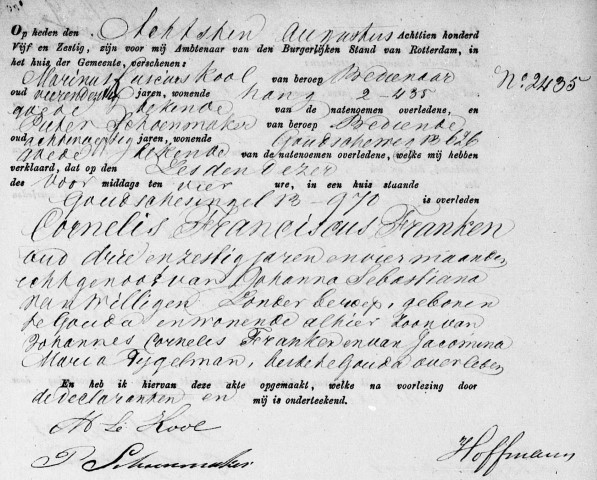 Op heden den Achtsten Augustus Achttien honderd
Vijf en Zestig, zijn voor mij Ambtenaar van den Burgerlijken Stand van Rotterdam, in
het huis der Gemeente, verschenen:
Marinus Kool van beroep Bediende No. 2435
oud jaren, wonende hang 2-435
goede bekende van de natenoemen overledene, en
Pieter Schoenmaker van beroep Bediende
oud jaren, wonende Goudscheweg 12
goede bekende van de natenoemen overledene, welke mij hebben
verklaard, dat op den Zesden dezer
des voor middags ten vier ure, in een huis staande
Goudschesingel 13-970 is overleden
Cornelis Franciscus Franken
oud drie en zestig jaren en vier maanden,
echtgenoot van Johanna Sebastiana
van Willigen Zonder beroep, geboren
te Gouda en wonende alhier Zoon van
Johannes Cornelis Franken en van Jacomina
Maria Tygelman, beide te Gouda overleden
En heb ik hiervan deze akte opgemaakt, welke na voorlezing door
de declaranten en mij is onderteekend.
Kool
P. Schoenmaker Hoffmann